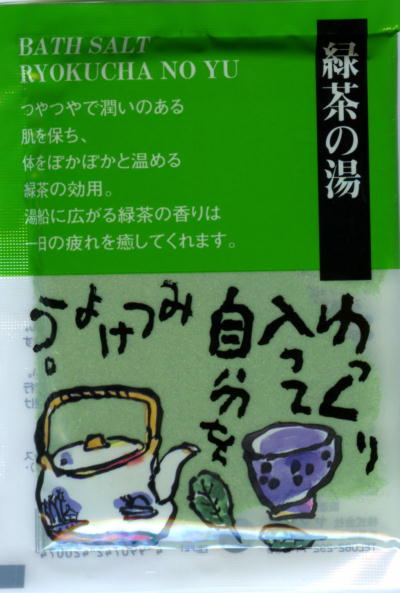 BATH SALT
RYOKUCHA NO YU
緑茶の湯
つやつやで潤いのある
肌を保ち、
体をぽかぽかと温める
緑茶の効用。
湯船に広がる緑茶の香りは
一日の疲れを癒してくれます。
ゆっくり
入って
自分を
みつけ
よう。